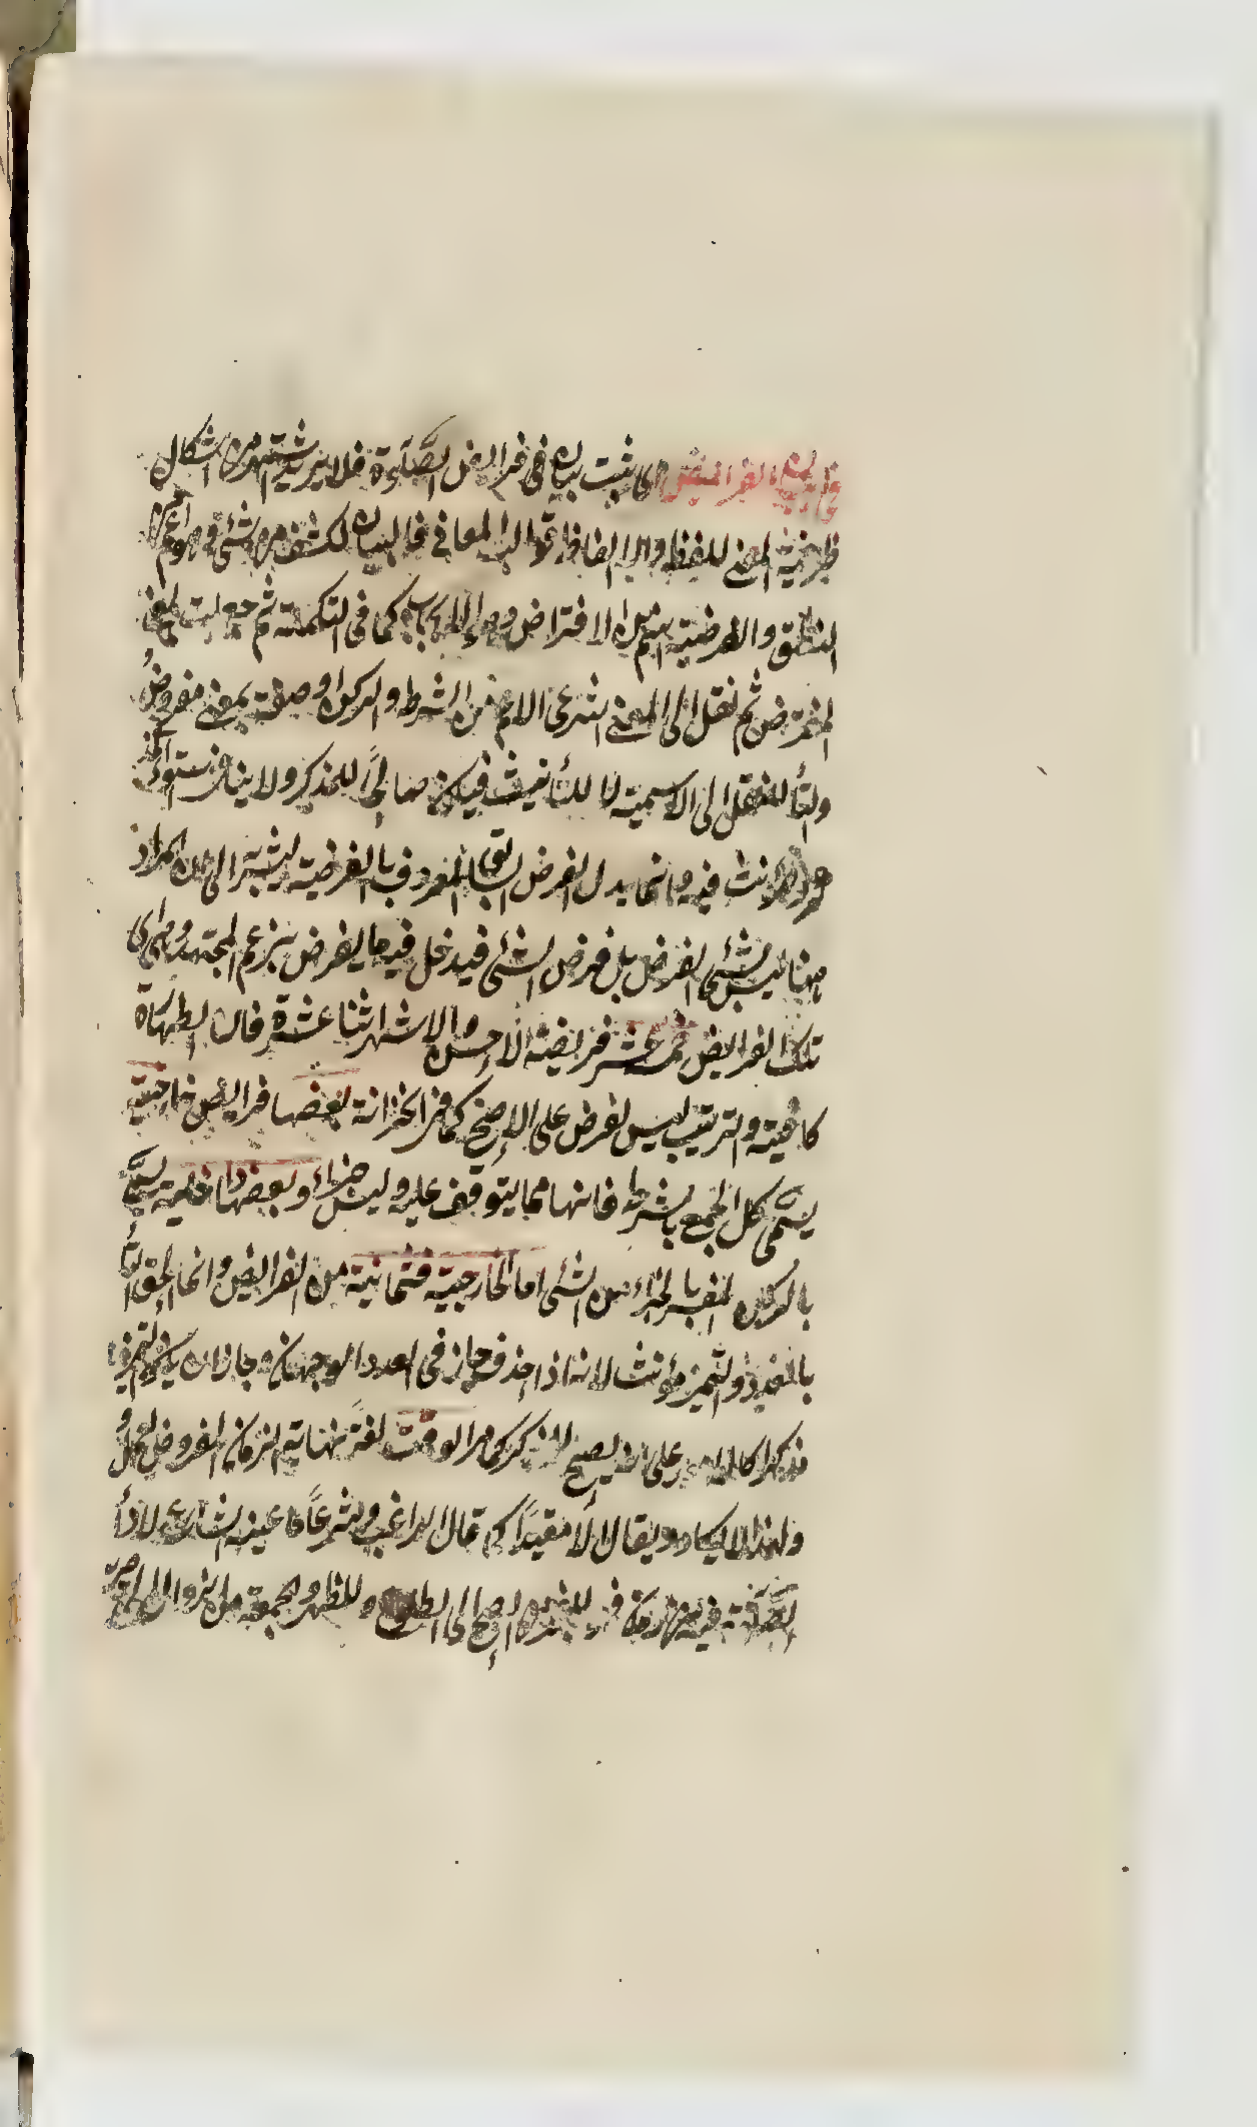 في بيان الفرائض اي يثبت بيانه في فرائض الصلوة فلا يرد ما يشتهر من اشكال
ظرفية المعنى للفظ والالفاظ قوالب المعاني فالبيان الكشف من شئ وهو اعم من
النطق والفرضية اسم من الافتراض وهو الايجاب كما في التكملة ثم جعلت بمعنى
المفترض ثم نقل الى المعنى الشرعي الاعم من الشرط والركن او صفة بمعنى مفروض
والتأ للنقل الى الاسمية لا للتأنيث فيكون صالحاً للمذكر ولا ينافي استواء
المؤنث فيه وانما يدل الفرض السابق المعروف بالفرضية ليشير الى ان المراد
ههنا ليس الشئ الفرض بل فرض الشئ فيدخل فيها الفرض بزعم المجتهد وهي اي
تلك الفرائض خمس عشر فريضة الاحسن والاشهر اثنا عشرة فان الطهارة
كافية والترتيب ليس لفرض على الاصح كما في الخزانة بعضها فرائض خارجية
يسمى كل الجمع بالشرط فانها مما يتوقف عليه وليس جزاء وبعضها داخلية يسمى
بالركن المفسر بالجزاء من الشئ اما الخارجية فثمانية من الفرائض وانما الحق التأ
بالعدد والتميز مؤنث لانه اذا حذف جاز في العدد الوجهان وجاز ان يكون التميز
مذكرا على انه يصح للمذكر كما مر الوقت لغة نهاية الزمان المفروض للعمل
ولهذا لا يكاد يقال الا مقيداً كما قال الراغب وشرعاً ما عينه الشارع لاداء
الصلوة فيه من زمان للفجر من الصبح الى الطلوع وللظهر والجمعة من الزوال الى